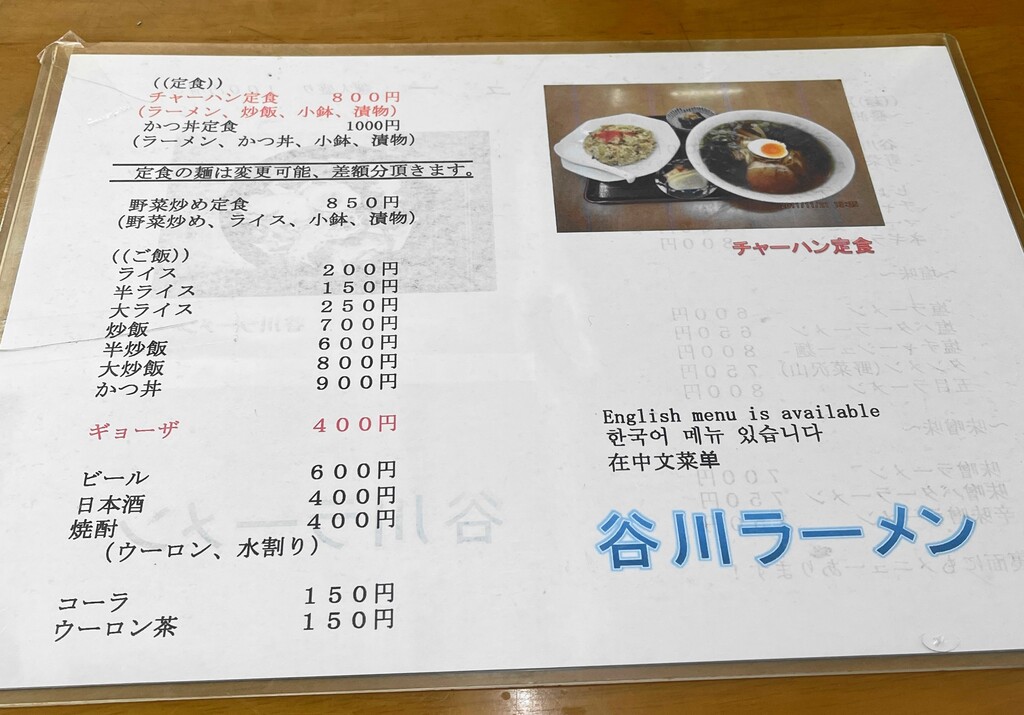 ((定食))
チャーハン定食 ８００円
(ラーメン、炒飯、小鉢、漬物)
かつ丼定食 1000円
(ラーメン、かつ丼、小鉢、漬物)
定食の麺は変更可能、差額分頂きます。
野菜炒め定食 ８５０円
(野菜炒め、ライス、小鉢、漬物)
((ご飯))
ライス ２００円
半ライス １５０円
大ライス ２５０円
炒飯 ７００円
半炒飯 ６００円
大炒飯 ８００円
かつ丼 ９００円
ギョーザ ４００円
ビール ６００円
日本酒 ４００円
焼酎 ４００円
(ウーロン、水割り)
コーラ １５０円
ウーロン茶 １５０円
チャーハン定食
English menu is available
한국어 메뉴 있습니다
在中文菜单
谷川ラーメン